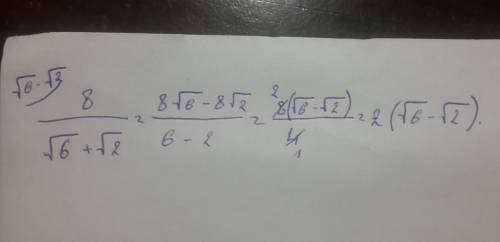 √6 - √2
8 / (√6 + √2) = (8√6 - 8√2) / (6 - 2) = 2 8(√6 - √2) / 4 1 = 2 (√6 - √2).